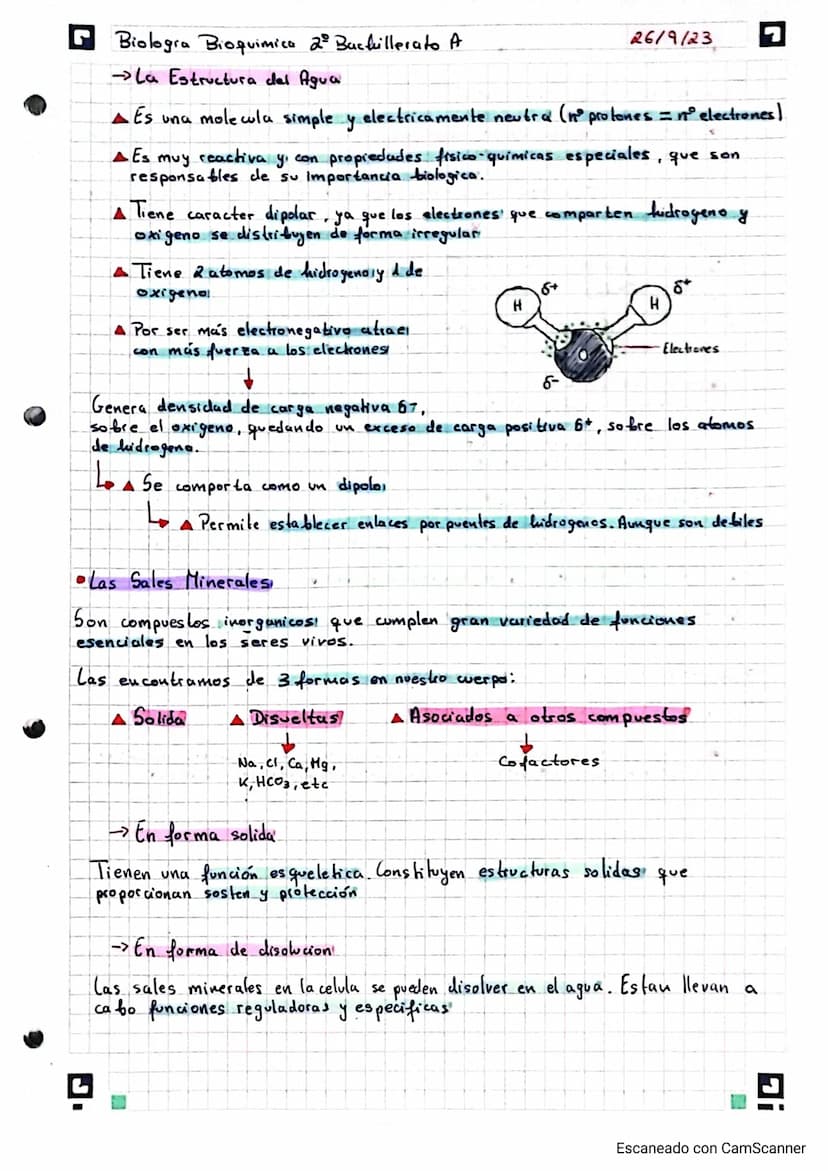 Biologia Bioquimica 2º Bachillerato A
26/9/23
→ La Estructura del Agua
▲ Es una molecula simple y electricamente neutra (nº protones = nº electrones)
▲ Es muy reactiva y, con propiedades físico-químicas especiales, que son
responsables de su importancia biologica.
▲ Tiene caracter dipolar, ya que los electrones que comparten hidrogeno y
oxigeno se distribuyen de forma irregular
▲ Tiene 2 atomos de hidrogeno y 1 de
oxigeno
▲ Por ser más electronegativo atrae
con más fuerza a los electrones
H δ+
H δ+
O
δ-
Electrones
Genera densidad de carga negativa δ-,
sobre el oxigeno, quedando un exceso de carga positiva δ+, sobre los atomos
de hidrogeno.
▲ Se comporta como un dipolo
▲ Permite establecer enlaces por puentes de hidrogenos. Aunque son debiles
• Las Sales Minerales
Son compuestos inorganicos que cumplen gran variedad de funciones
esenciales en los seres vivos.
Las encontramos de 3 formas en nuestro cuerpo:
▲ Solida ▲ Disueltas ▲ Asociados a otros compuestos
Na, Cl, Ca, Mg,
K, HCO3, etc
Cofactores
→ En forma solida
Tienen una función esqueletica. Constituyen estructuras solidas que
proporcionan sosten y protección
→ En forma de disolucion
Las sales minerales en la celula se pueden disolver en el agua. Estan llevan a
cabo funciones reguladoras y especificas
Escaneado con CamScanner